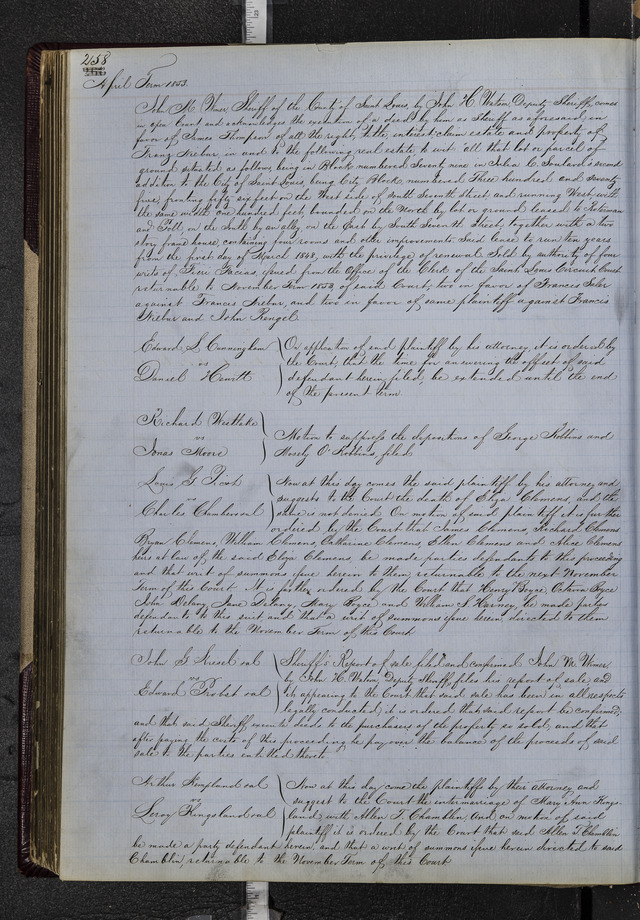 258
April Term 1853.
John M. Wimer, Sheriff of the County of Saint Louis, by John H. Watson, Deputy Sheriff, comes
in open Court and acknowledges the execution of a deed by him as Sheriff as aforesaid, in
favor of James Thompson of all the right, title, interest, claim, estate and property of
Franz Webur in and to the following real estate to wit: all that lot or parcel of
ground situated as follows, being in Block numbered Seventy nine in John C. Soulard's second
addition to the City of Saint Louis, being City Block, numbered Three hundred and seventy
five, fronting fifty six feet on the West side of South Seventh street, and running West with
the same width one hundred feet, bounded on the North by lot or ground leased to
and Goll, on the South by an alley, on the East by South Seventh Street, together with a two
story frame house, containing four rooms and other improvements. Said lease to run ten years
from the first day of March 1848, with the privilege of renewal. Sold by authority of four
writs of Fiere Facias, issued from the Office of the Clerk of the Saint Louis Circuit Court
returnable to November Term 1852, of said Court, two in favor of Francis Saler
against Francis Webur, and two in favor of same plaintiff against Francis
Webur and John Rengel
Edward S. Cunningham
vs
Daniel Hewitt
On application of said plaintiff by his attorney it is ordered by
the Court, that the time for answering the offset of said
defendant herein filed, be extended until the end
of the present term
Richard Westlake
vs
Jonas Moore
Motion to suppress the depositions of George Robbins and
Mosely O'Robbins, filed.
Louis G. Picot
vs
Charles Chambers et al
Now at this day comes the said plaintiff by his attorney, and
suggests to the Court the death of Eliza Clemens, and the
same is not denied. On motion of said plaintiff it is further
ordered by the Court that James Clemens, Richard Clemens
Bryan Clemens, William Clemens, Catharine Clemens, Ellen Clemens and Alice Clemens
heirs at law of the said Eliza Clemens, be made parties defendants to this proceeding
and that writ of summons issue herein to them returnable to the next November
Term of this Court. It is further ordered by the Court that Henry Boyce, Octavia Boyce
John Delany, Jane Delany, Mary Boyce and William S. Harney, be made parties
defendants to this suit and that a writ of summons issue herein directed to them
returnable to the November Term of this Court
John G. et al
vs
Edward Probst et al
Sheriff's Report of sale filed and confirmed. John M. Wimer
by John H. Watson, Deputy Sheriff, files his report of sale, and
it appearing to the Court that said sale has been in all respects
legally conducted, it is ordered that said report be confirmed,
and that said Sheriff execute deeds to the purchasers of the property so sold, and that
after paying the costs of this proceeding he pay over the balance of the proceeds of said
sale to the parties entitled thereto
Arthur Kingsland et al
vs
Leroy Kingsland et al
Now at this day come the plaintiffs by their Attorney and
suggest to the Court the intermarriage of Mary Ann Kings-
land, with Allen T. Chamblin, and on motion of said
plaintiff it is ordered by the Court that said Allen T. Chamblin
be made a party defendant herein, and that a writ of summons issue herein directed to said
Chamblin, returnable to the November Term of this Court